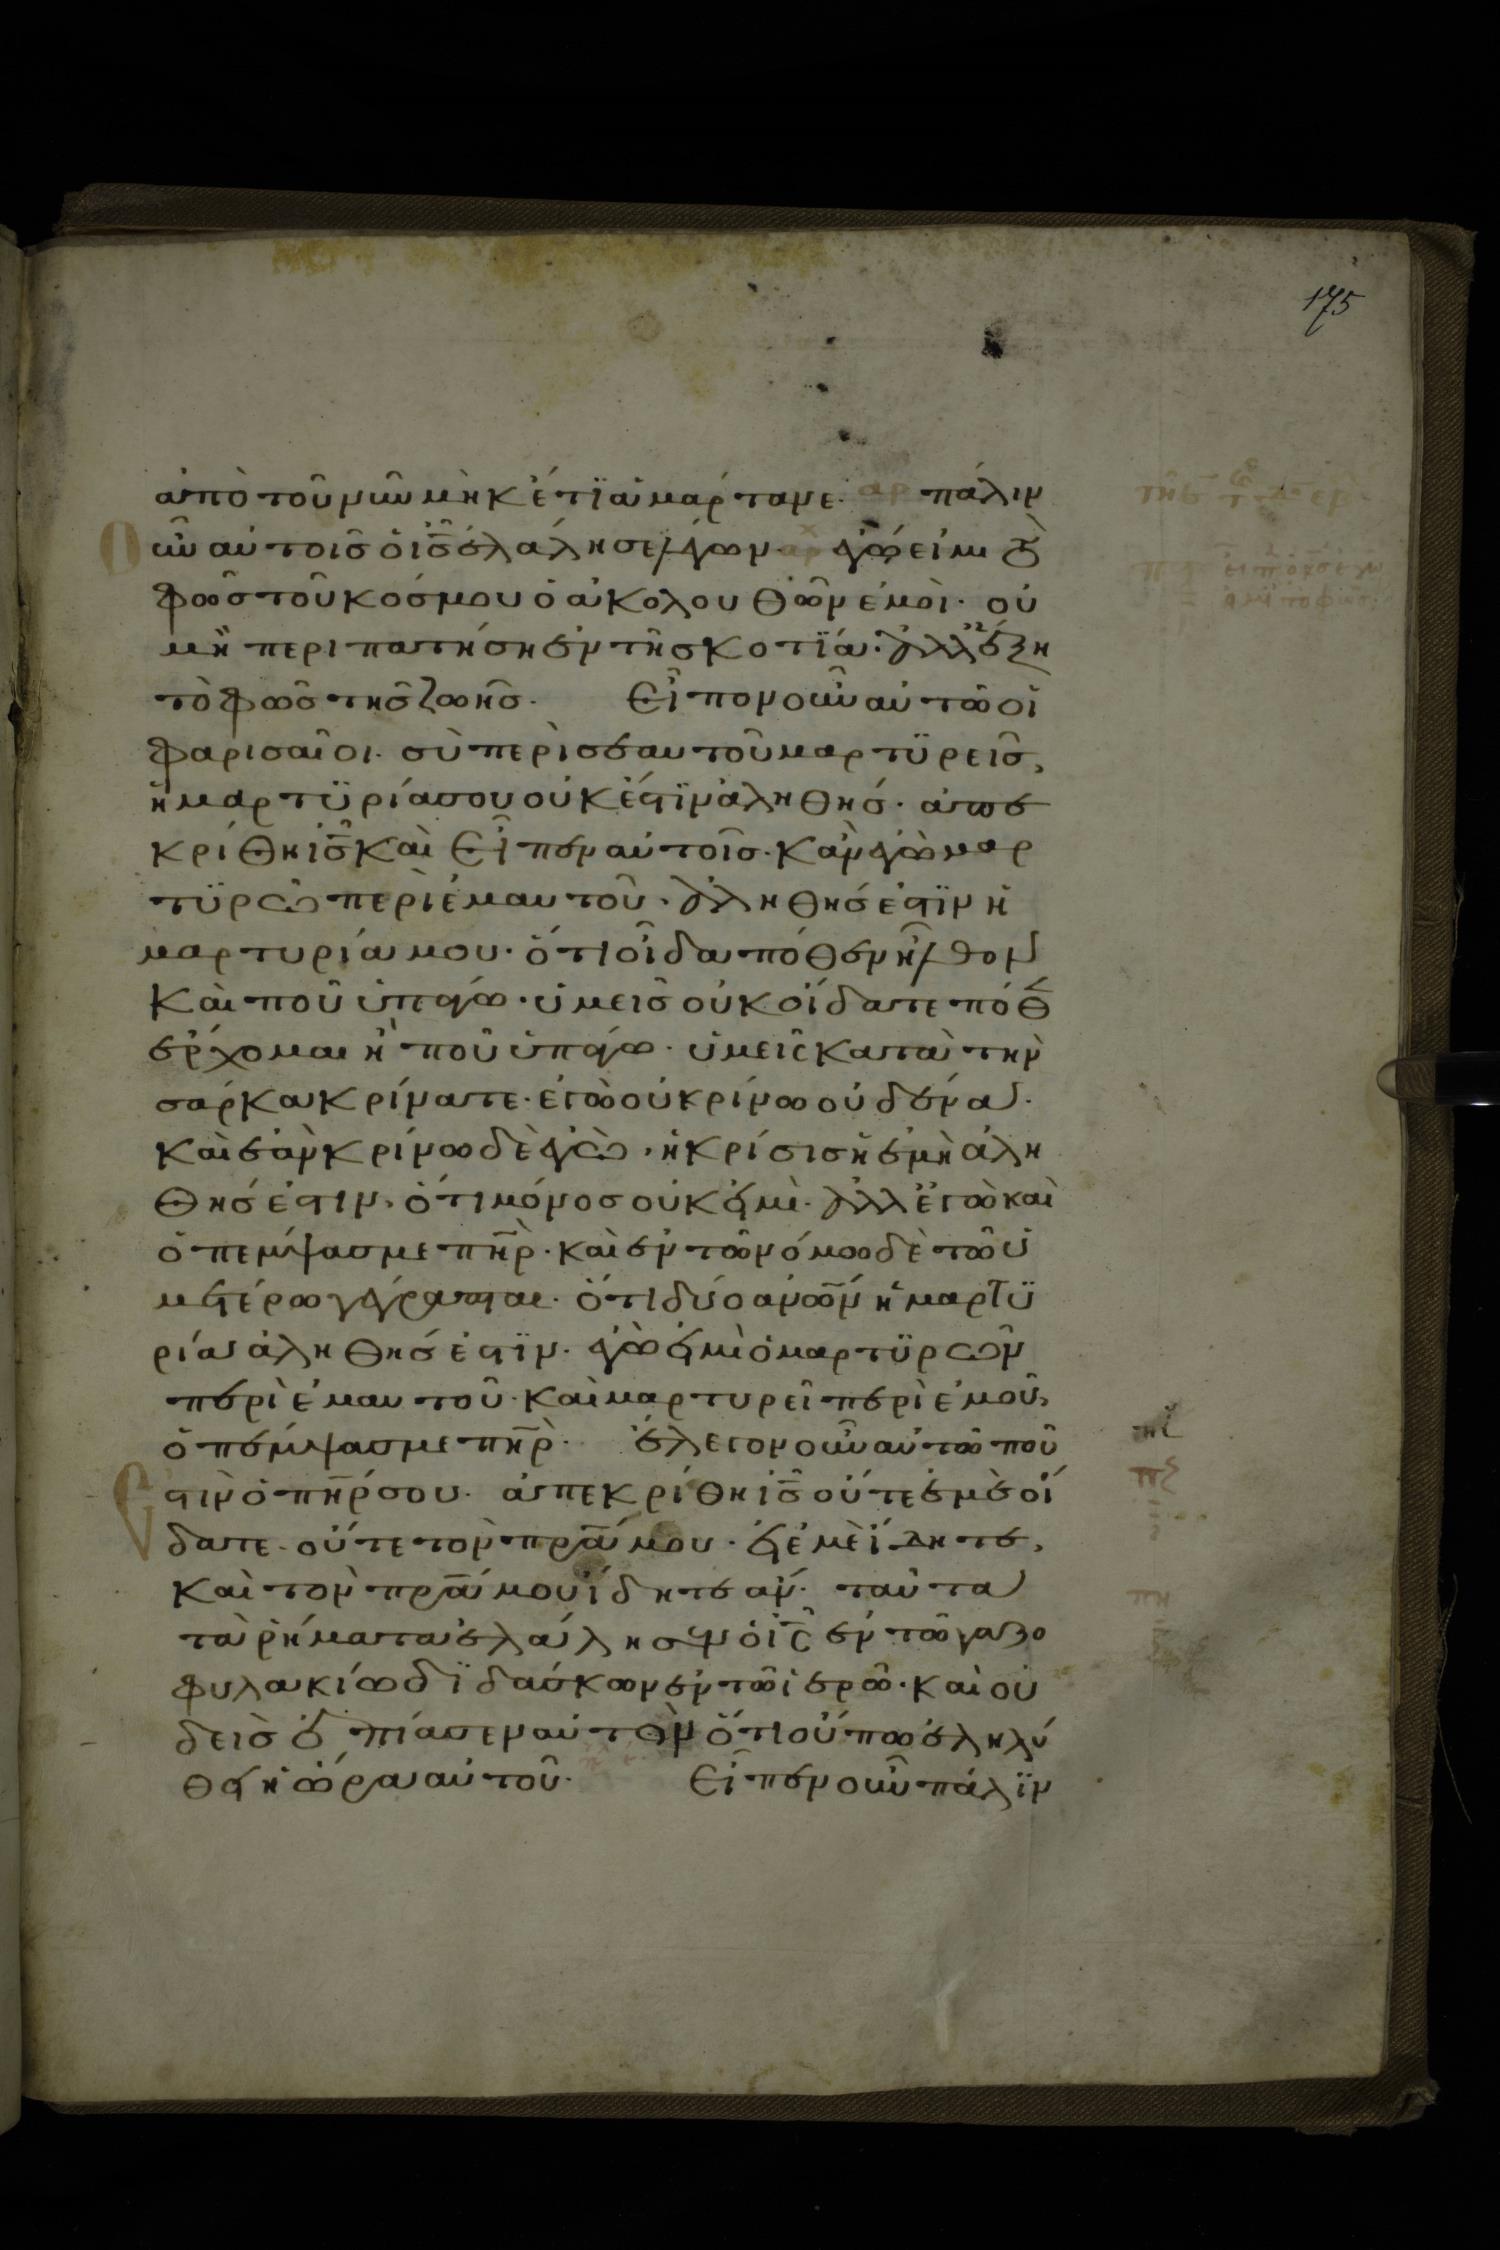 175
ἀπὸ τοῦ νῦν μὴκέτϊ ἁμάρτανε· αρ πάλιν
οὖν αὐτοῖς ὁ ις̅ ἐλάλησε λέγων· ἐγώ εἰμι τὸ
φῶς τοῦ κόσμου ὁ ἀκολουθῶν ἐμοὶ· οὐ
μὴ περιπατήση ἐν τῆ σκοτϊία· ἀλλ᾽ ἕξη
τὸ φῶς τῆς ζωῆς· Εἶπον οὖν αὐτῶ οἱ
φαρισαῖοι· σὺ περὶ σεαυτοῦ μαρτϋρεῖς,
ἡ μαρτϋρία σου οὐκ ἔστϊν ἀληθής· ἀπε
κρίθη ις̅ καὶ Εἶπεν αὐτοῖς· κἀν ἐγὼ μαρ
τϋρῶ περὶ ἐμαυτοῦ· ἀληθής ἐστϊν ἡ
μαρτυρία μου· ὅτι οἶδα πόθεν ἦλθον
καὶ ποῦ ὑπάγω· ὑμεῖς οὐκ οἴδατε πόθ
ἔρχομαι ἢ ποῦ ὑπάγω· ὑμεῖς κατὰ τὴν
σάρκα κρίνατε· ἐγὼ οὐ κρίνω οὐδένα·
καὶ ἐὰν κρίνω δὲ ἐγὼ, ἡ κρίσις ἡ ἐμὴ ἀλη
θής ἐστιν, ὅτι μόνος οὐκ εἰμὶ· ἀλλ᾽ ἐγὼ καὶ
ὁ πέμψας με πη̅ρ· καὶ ἐν τῶ νόμω δὲ τῶ ὑ
μετέρω γέγραπται· ὅτι δύο ἀνω̅ν ἡ μαρτϋ
ρία ἀληθής ἐστϊν· ἐγὼ εἰμὶ ὁ μαρτϋρῶν
περὶ ἐμαυτοῦ· καὶ μαρτυρεῖ περὶ ἐμοῦ,
ὁ πέμψας με πη̅ρ· ἔλεγον οὖν αὐτῶ ποῦ
ἐστιν ὁ πη̅ρ σου· ἀπεκρίθη ις̅ οὔτε ἐμὲ οἴ
δατε οὔτε τὸν πρ̅α μου· εἰ ἐμὲ ἴδητε,
καὶ τὸν πρ̅α μου ἴδητε ἄν· ταῦτα
τὰ ῥήματα ἐλάλησεν ὁ ις̅ ἐν τῶ γαζο
φυλακίω δϊδάσκων ἐν τῶ ἱερῶ· καὶ οὐ
δεὶς ἐπίασεν αὐτὸν ὅτι οὔπω ἐληλύ
θει ἡ ὥρα αὐτοῦ· Εἶπεν οὖν πάλϊν
πζ
πη